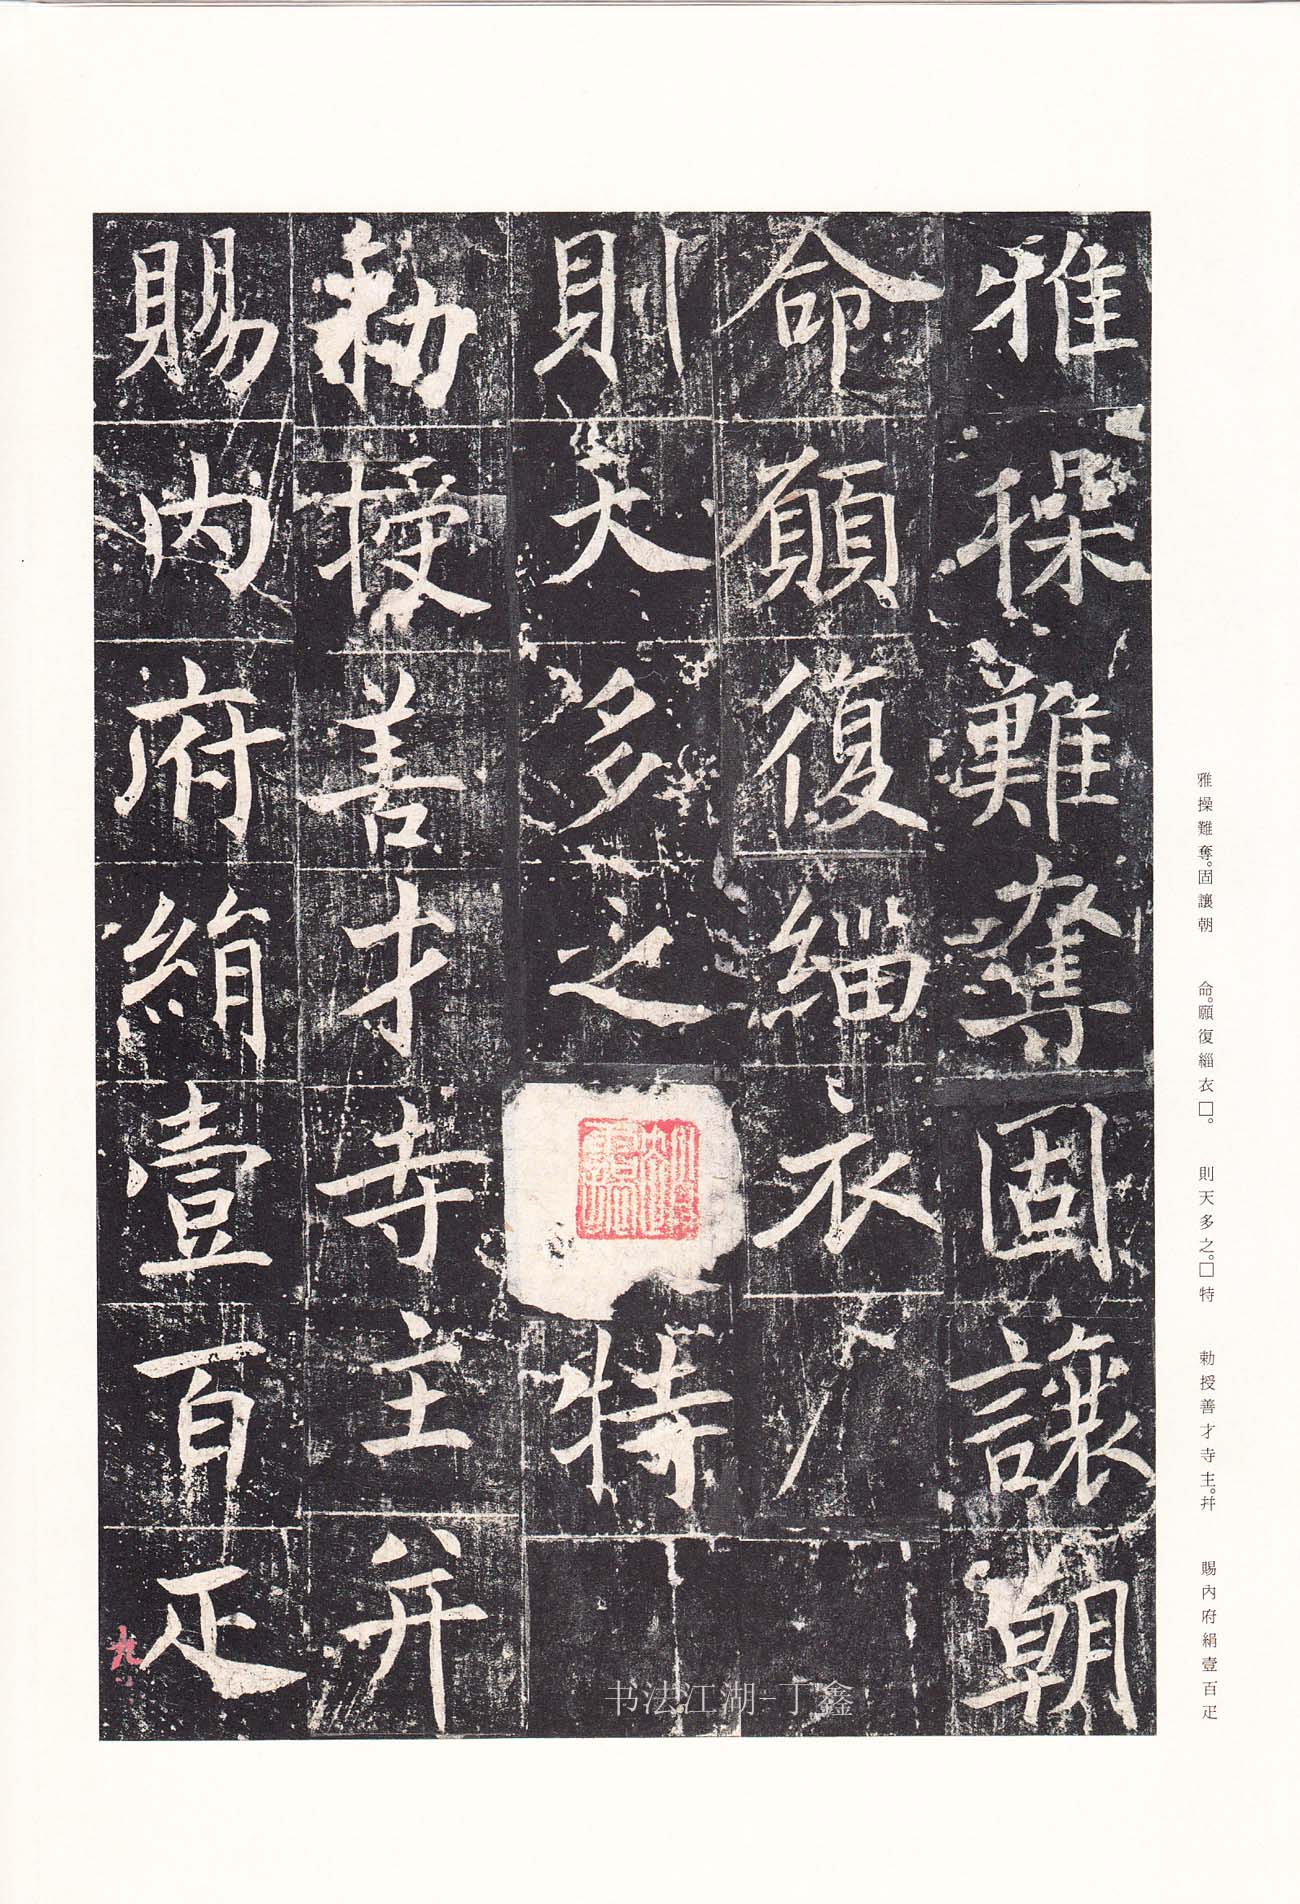 雅操難奪固讓朝
命願復緇衣
則天多之特
勅授善才寺主并
賜内府絹壹百疋
雅操難奪。固讓朝
命。願復緇衣□。
則天多之。□特
勅授善才寺主。幷
賜内府絹壹百疋
书法江湖-丁鑫